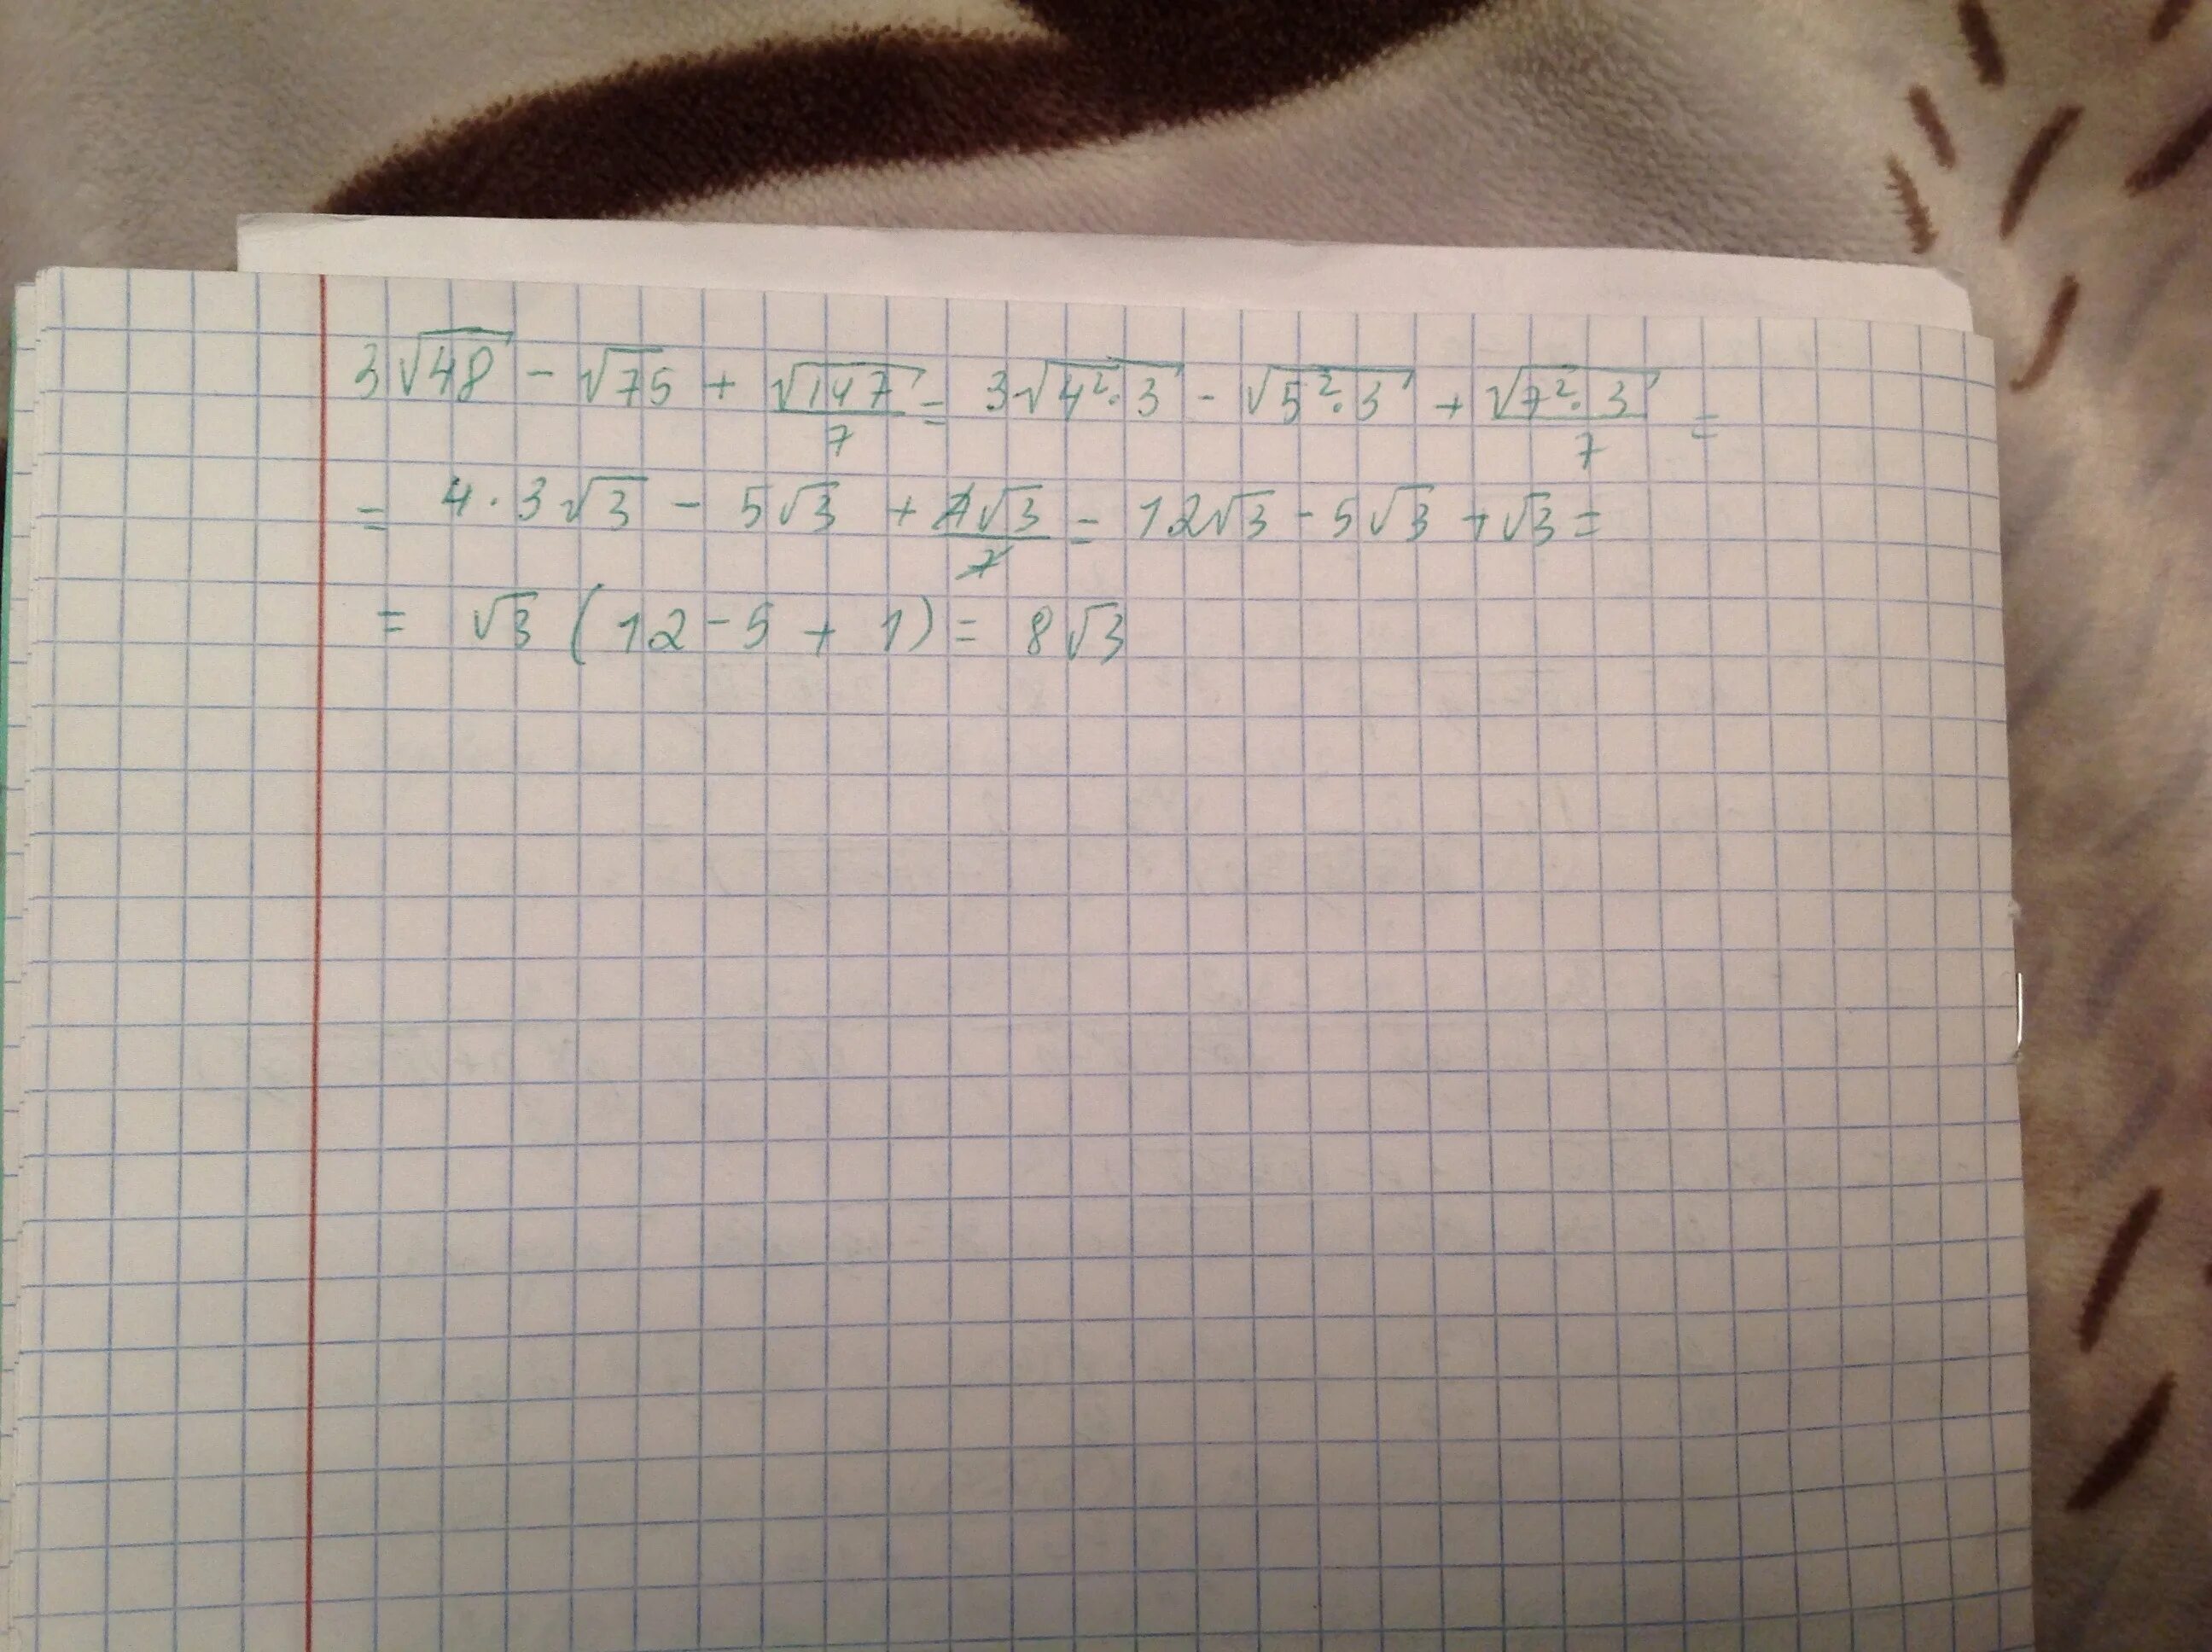 3√48 - √75 + √147/7 = 3√4²·3 - √5²·3 + √7²·3/7 =
= 4·3√3 - 5√3 + 7√3/7 = 12√3 - 5√3 + √3 =
= √3 (12 - 5 + 1) = 8√3